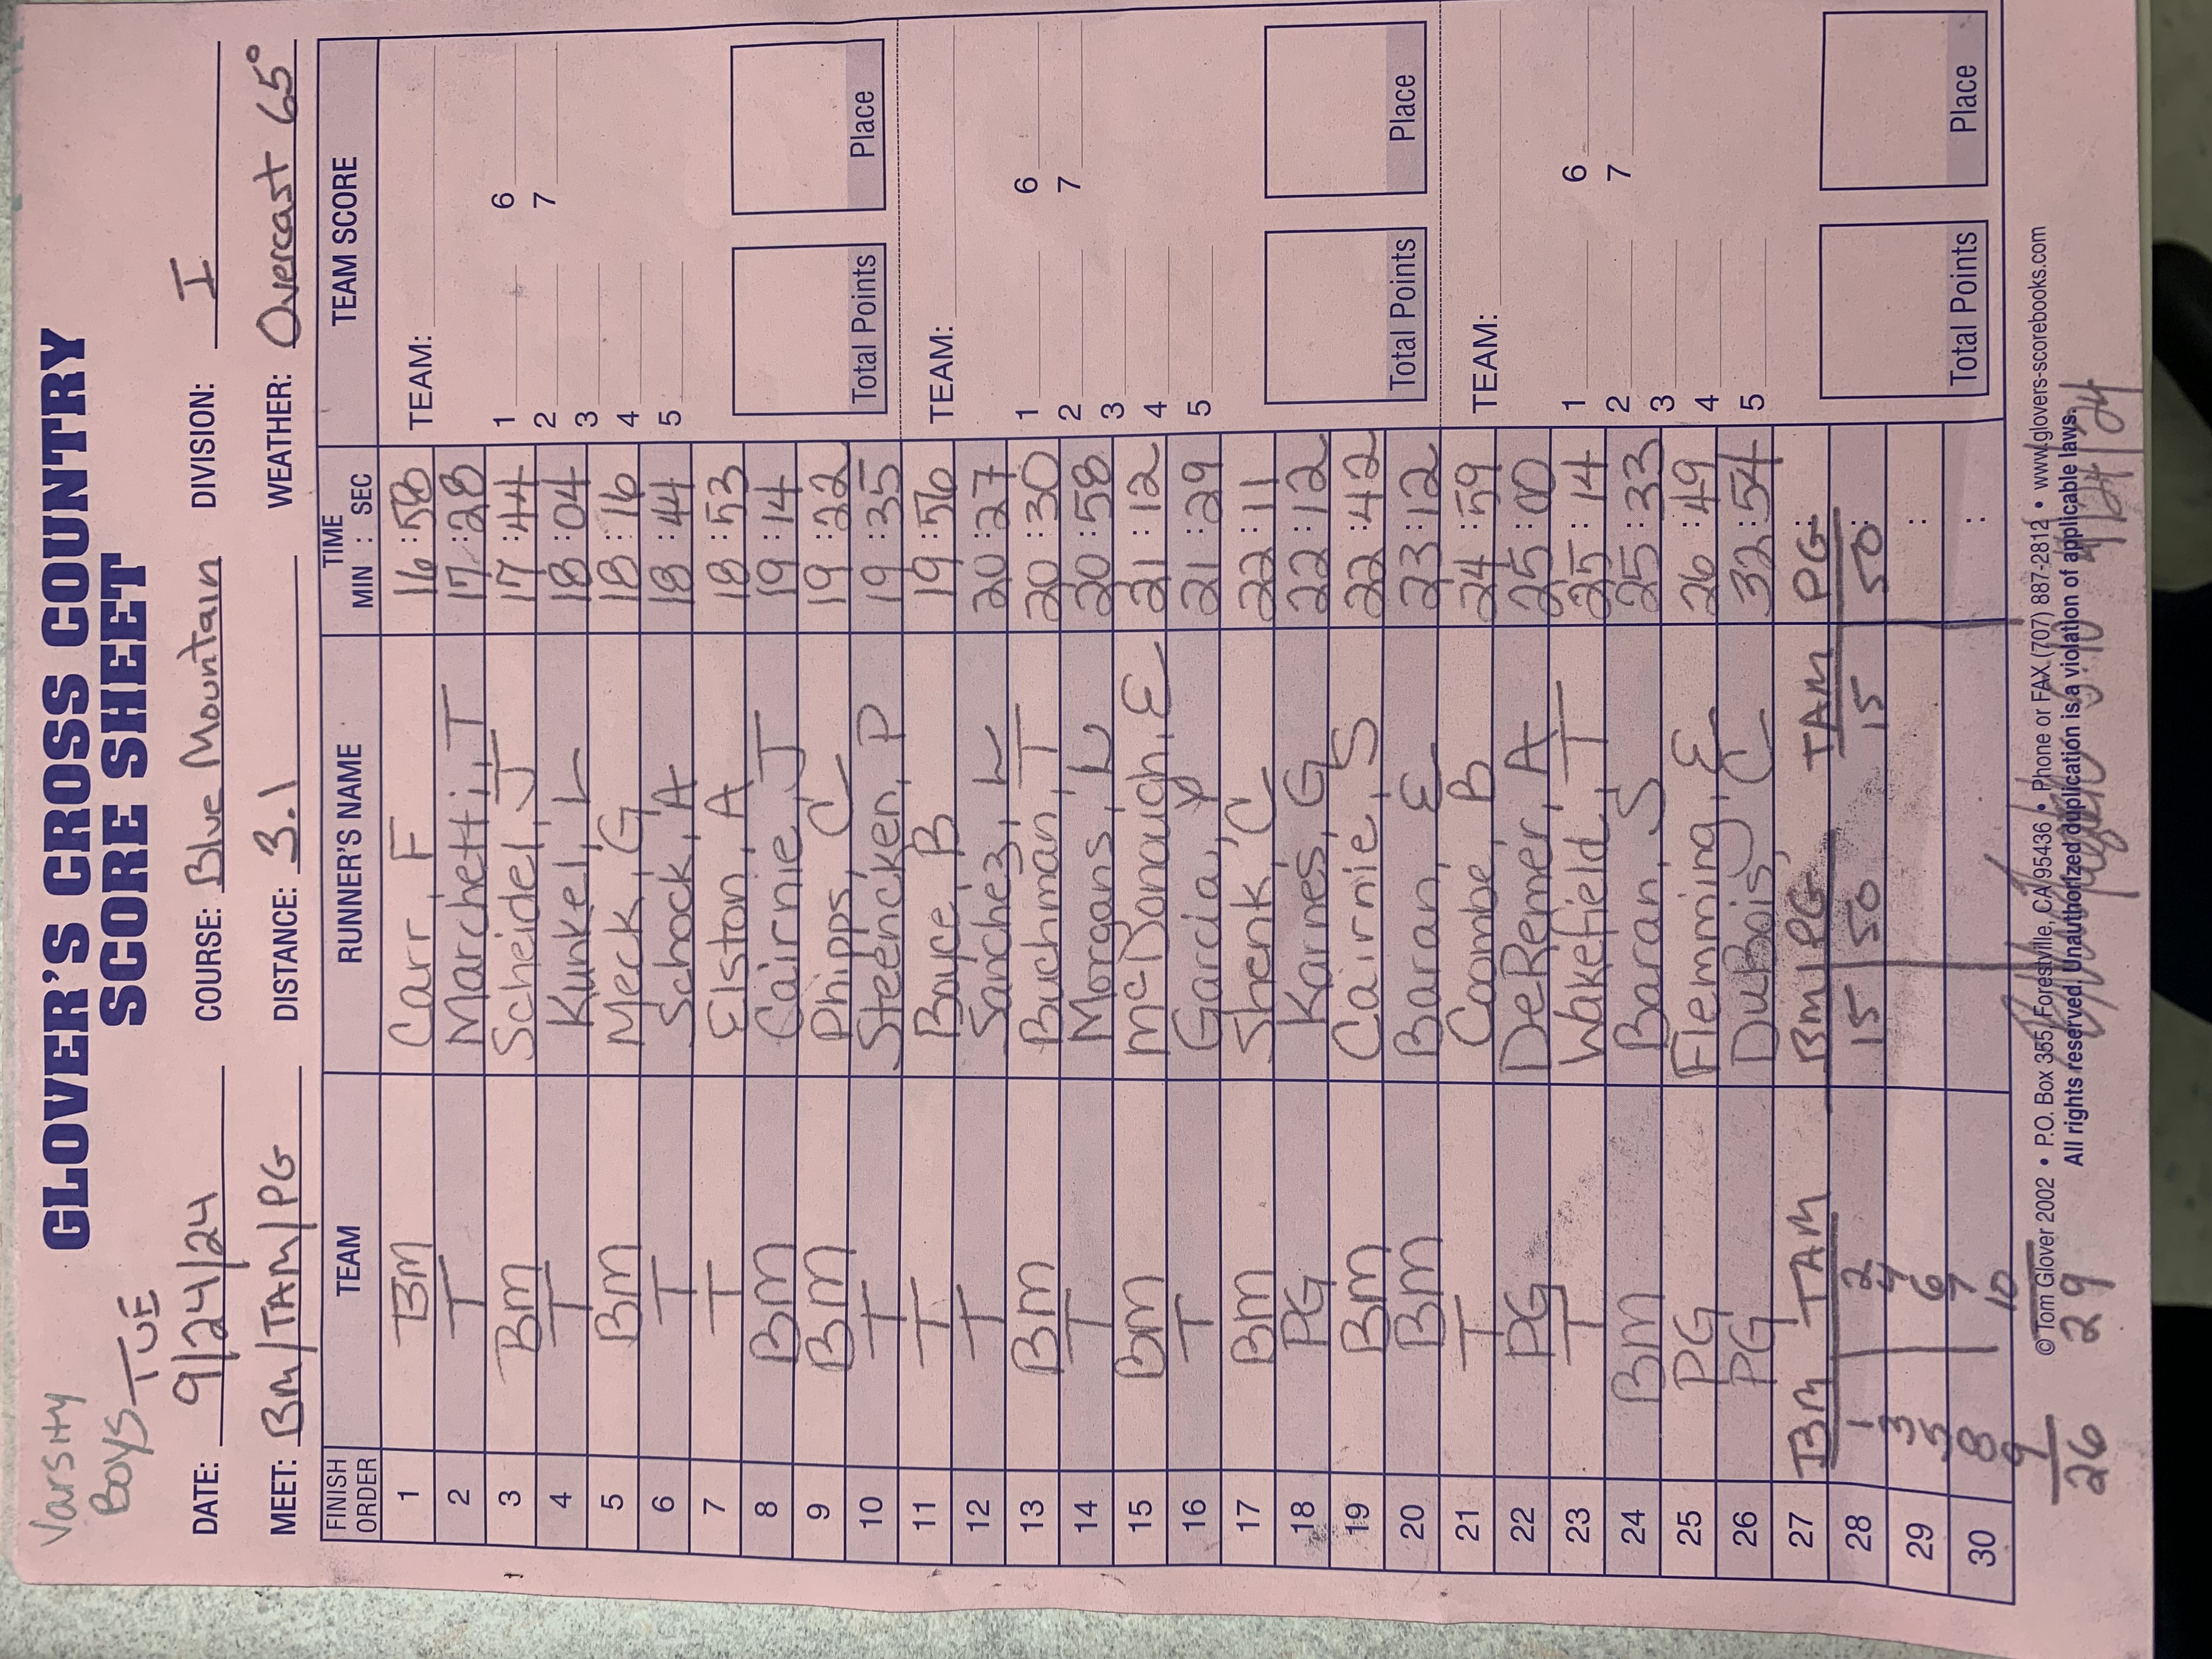 Varsity
Boys
TUE
GLOVER'S CROSS COUNTRY
SCORE SHEET
DATE: 9/24/24 COURSE: Blue Mountain DIVISION: I
MEET: Bm/TAM/PG DISTANCE: 3.1 WEATHER: Overcast 65°
FINISH ORDER TEAM RUNNER'S NAME TIME MIN : SEC TEAM SCORE
1 BM Carr, F 16:58
2 T Marchetti, T 17:28
3 Bm Scheidel, J 17:44
4 T Kunkel, L 18:04
5 Bm Meck, G 18:16
6 T Schock, A 18:44
7 T Elston, A 18:53
8 Bm Cairnie, J 19:14
9 Bm Phipps, C 19:22
10 T Steencken, P 19:35
11 T Boyce, B 19:56
12 T Sanchez, L 20:27
13 Bm Buchman, T 20:30
14 T Morgans, L 20:58
15 Bm McDonough, E 21:12
16 T Garcia, Y 21:29
17 Bm Shenk, C 22:11
18 PG Karnes, G 22:12
19 Bm Cairnie, S 22:42
20 Bm Baran, E 23:12
21 T Coombe, B 24:59
22 PG DeRemer, A 25:00
23 T Wakefield, T 25:14
24 Bm Baran, S 25:33
25 PG Flemming, E 26:49
26 PG DuBois, C 32:54
27 Bm TAM Bm PG TAM PG
28 1 2 15 50 15 50
29 3 4
5 6
30 8 7
9 10
26 29
TEAM:
1 6
2 7
3
4
5
Total Points Place
TEAM:
1 6
2 7
3
4
5
Total Points Place
TEAM:
1 6
2 7
3
4
5
Total Points Place
© Tom Glover 2002 • P.O. Box 355, Forestville, CA 95436 • Phone or FAX (707) 887-2812 • www.glovers-scorebooks.com
All rights reserved. Unauthorized duplication is a violation of applicable laws.
9/24/24